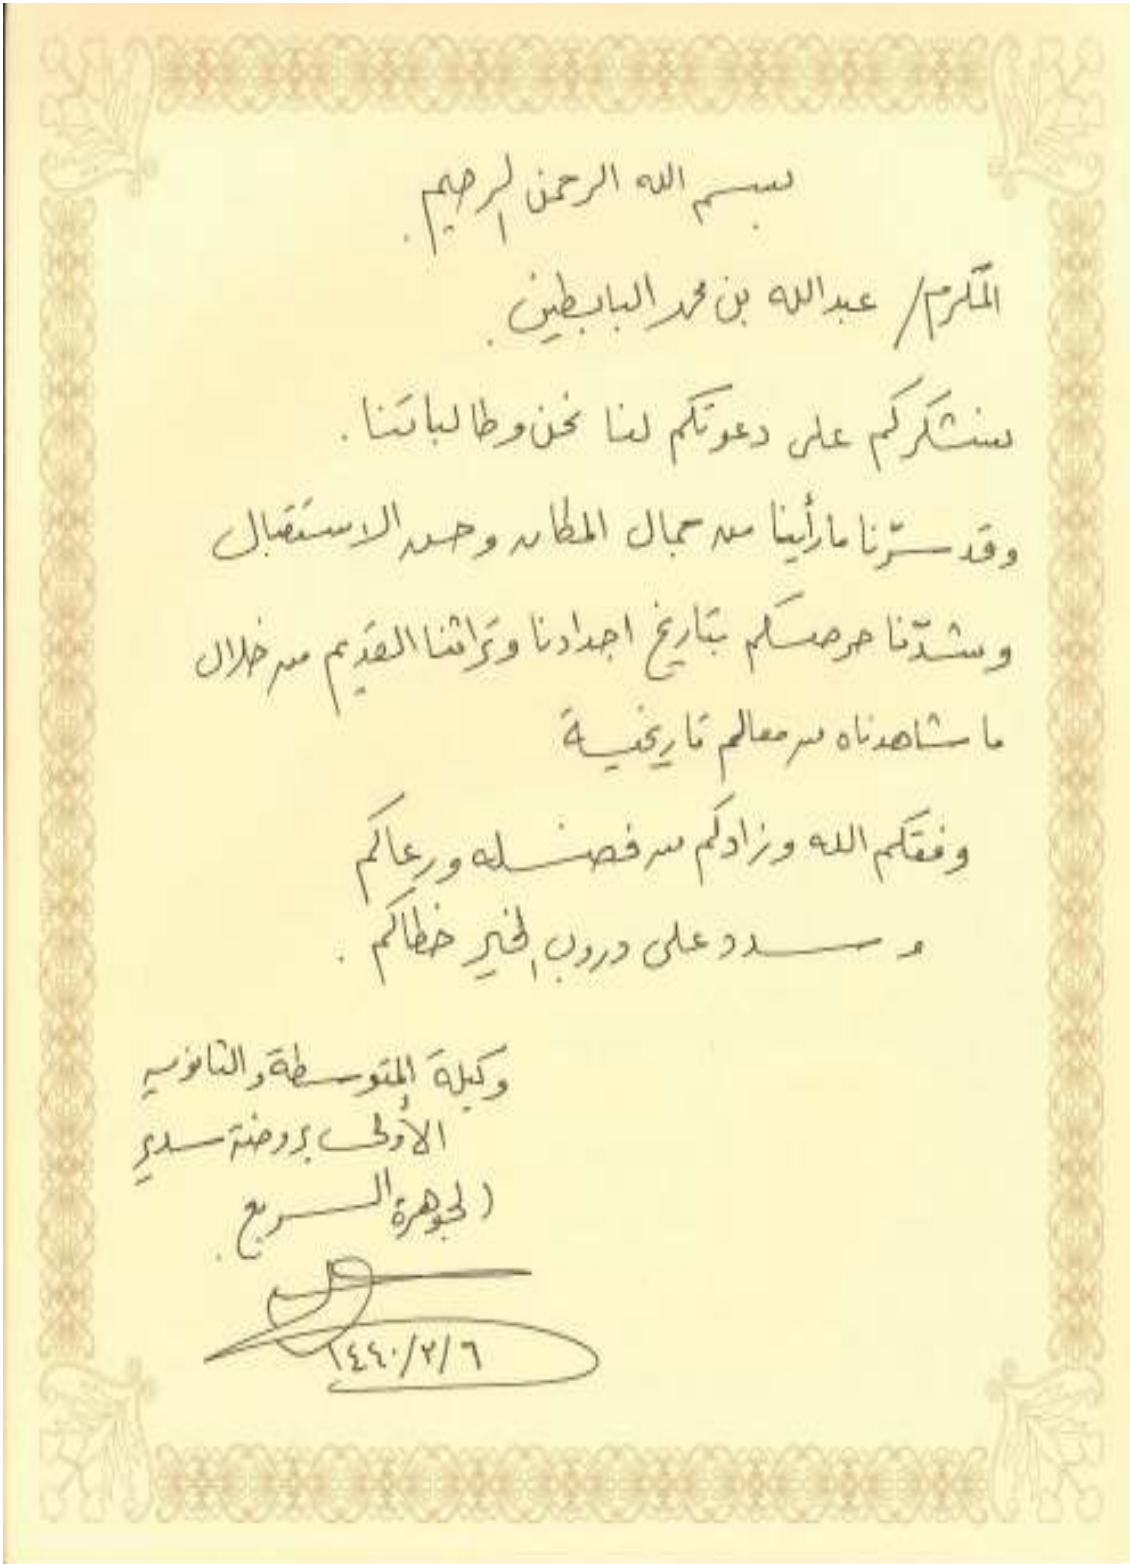 بسم الله الرحمن الرحيم.
المكرم/ عبدالله بن محمد البابطين.
نشكركم على دعوتكم لنا نحن وطالباتنا.
وقد سرّنا ما رأينا من جمال المكان وحسن الاستقبال
وشدّنا حرصكم بتاريخ اجدادنا وتراثنا القديم من خلال
ما شاهدناه من معالم تاريخية
وفقكم الله وزادكم من فضله ورعاكم
وسدد على دروب الخير خطاكم.
وكيلة المتوسطة والثانوية
الأولى بروضة سدير
الجوهرة السريع.
١٤٤٠/٢/٦